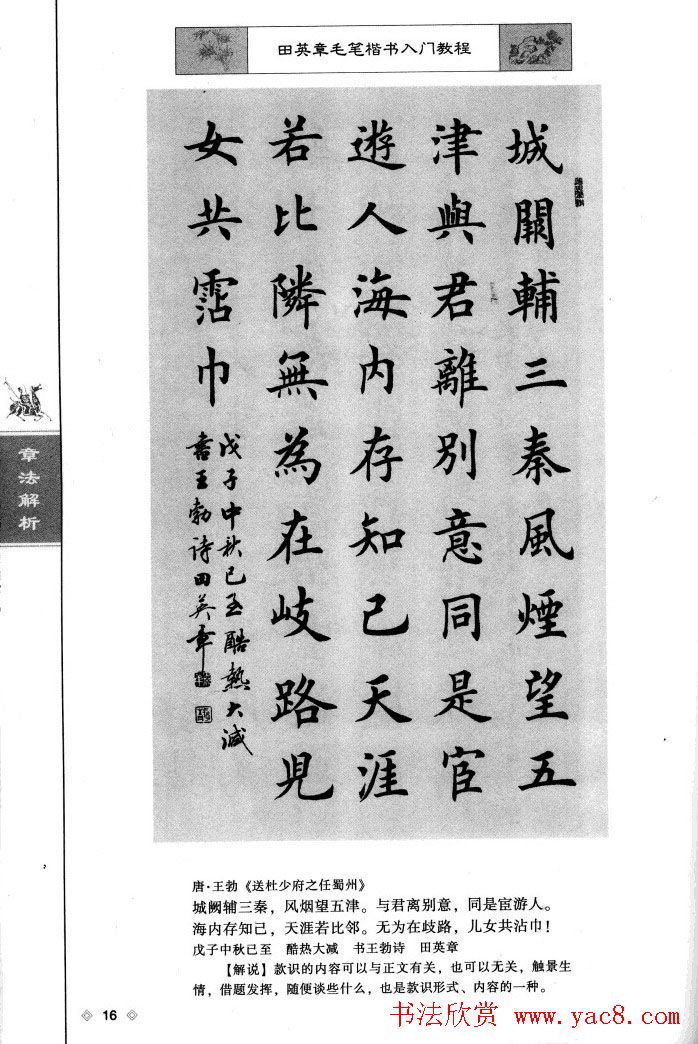 田英章毛笔楷书入门教程
城闕輔三秦風煙望五
津與君離別意同是宦
遊人海内存知己天涯
若比隣無為在岐路兒
女共霑巾
戊子中秋已至酷熱大減
書王勃诗田英章
章法解析
唐·王勃《送杜少府之任蜀州》
城阙辅三秦，风烟望五津。与君离别意，同是宦游人。
海内存知己，天涯若比邻。无为在歧路，儿女共沾巾！
戊子中秋已至 酷热大减 书王勃诗 田英章
【解说】款识的内容可以与正文有关，也可以无关，触景生
情，借题发挥，随便谈些什么，也是款识形式、内容的一种。
16
书法欣赏 www.yac8.com